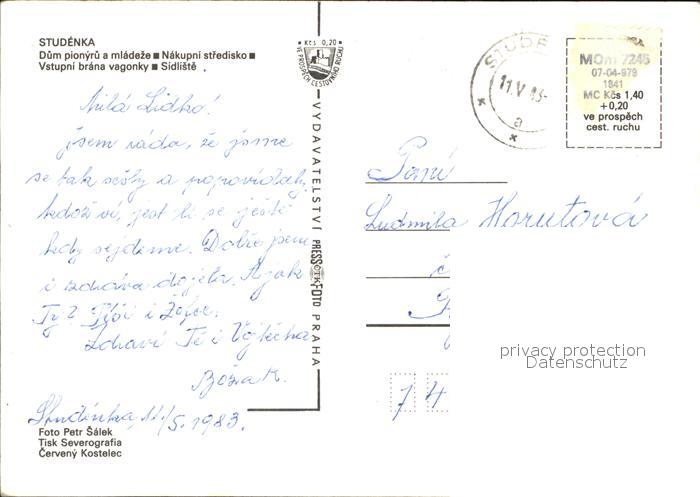 STUDÉNKA
Dům pionýrů a mládeže ■ Nákupní středisko ■
Vstupní brána vagonky ■ Sídliště
Kčs 0,20
VE PROSPĚCH CESTOVNÍHO RUCHU
Milá Lidko!
jsem ráda, že jsme
se tak sešly a popovídaly,
kdož ví, jest li se ještě
kdy sejdeme. Dobře jsem
i zdráva dojela. A jak
Ty? Píši i Žofce.
Zdraví Tě i Vojtěcha
Boža M.
Studénka, 11./5. 1983.
Foto Petr Šálek
Tisk Severografia
Červený Kostelec
VYDAVATELSTVÍ PRESSFOTO PRAHA
ČTK
STUDÉ
11.V.83-
a
MOm 7245
07-04-979
1841
MC Kčs 1,40
+0,20
ve prospěch
cest. ruchu
Paní
Ludmila Horutová
č
7 4
privacy protection
Datenschutz